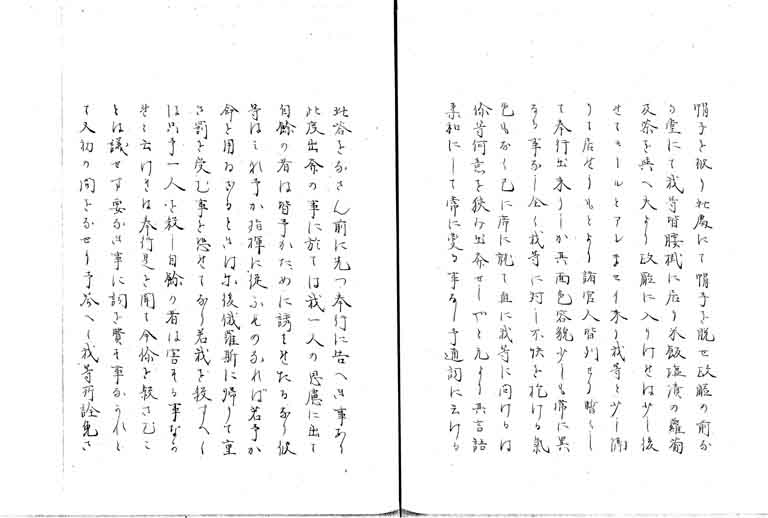 帽子を取り此處にて帽子を脱せ政廳の前な
る堂にて我等皆腰掛に居り米飯塩漬の蘿蔔
及茶を與へたり政廳に入りけせは少し後
せてモールとアレキセイ来り我等と少し隔
りて居せりもとより諸官人皆列せり暫くし
て奉行出来りしか其面色容貌少しも常に異
なる事なし全く我等に対し不快を抱ける氣
色もなく已に席に就て直に我等に向けるは
你等何意を狭み出奔せしやと尤より其言語
柔和にして常に變る事なし予通詞に云ける
此答をなさん前に先つ奉行に告へき事あり
此度出奔の事に於ては我一人の思慮に出て
自餘の者は皆予かために誘はせたるなり彼
等はこれ予か指揮に従ふものなれば若予か
命を用ゐさるときは尓後俄羅斯に帰りて重
き罰を受む事を恐せてなり若我を殺すへく
は只予一人を殺し自餘の者は害する事なか
せと云けきは奉行是を聞て今你を殺さむこ
とは議せす要なき事に詞を費す事なかれと
て又初の問をなせり予答へて我等所詮免さ